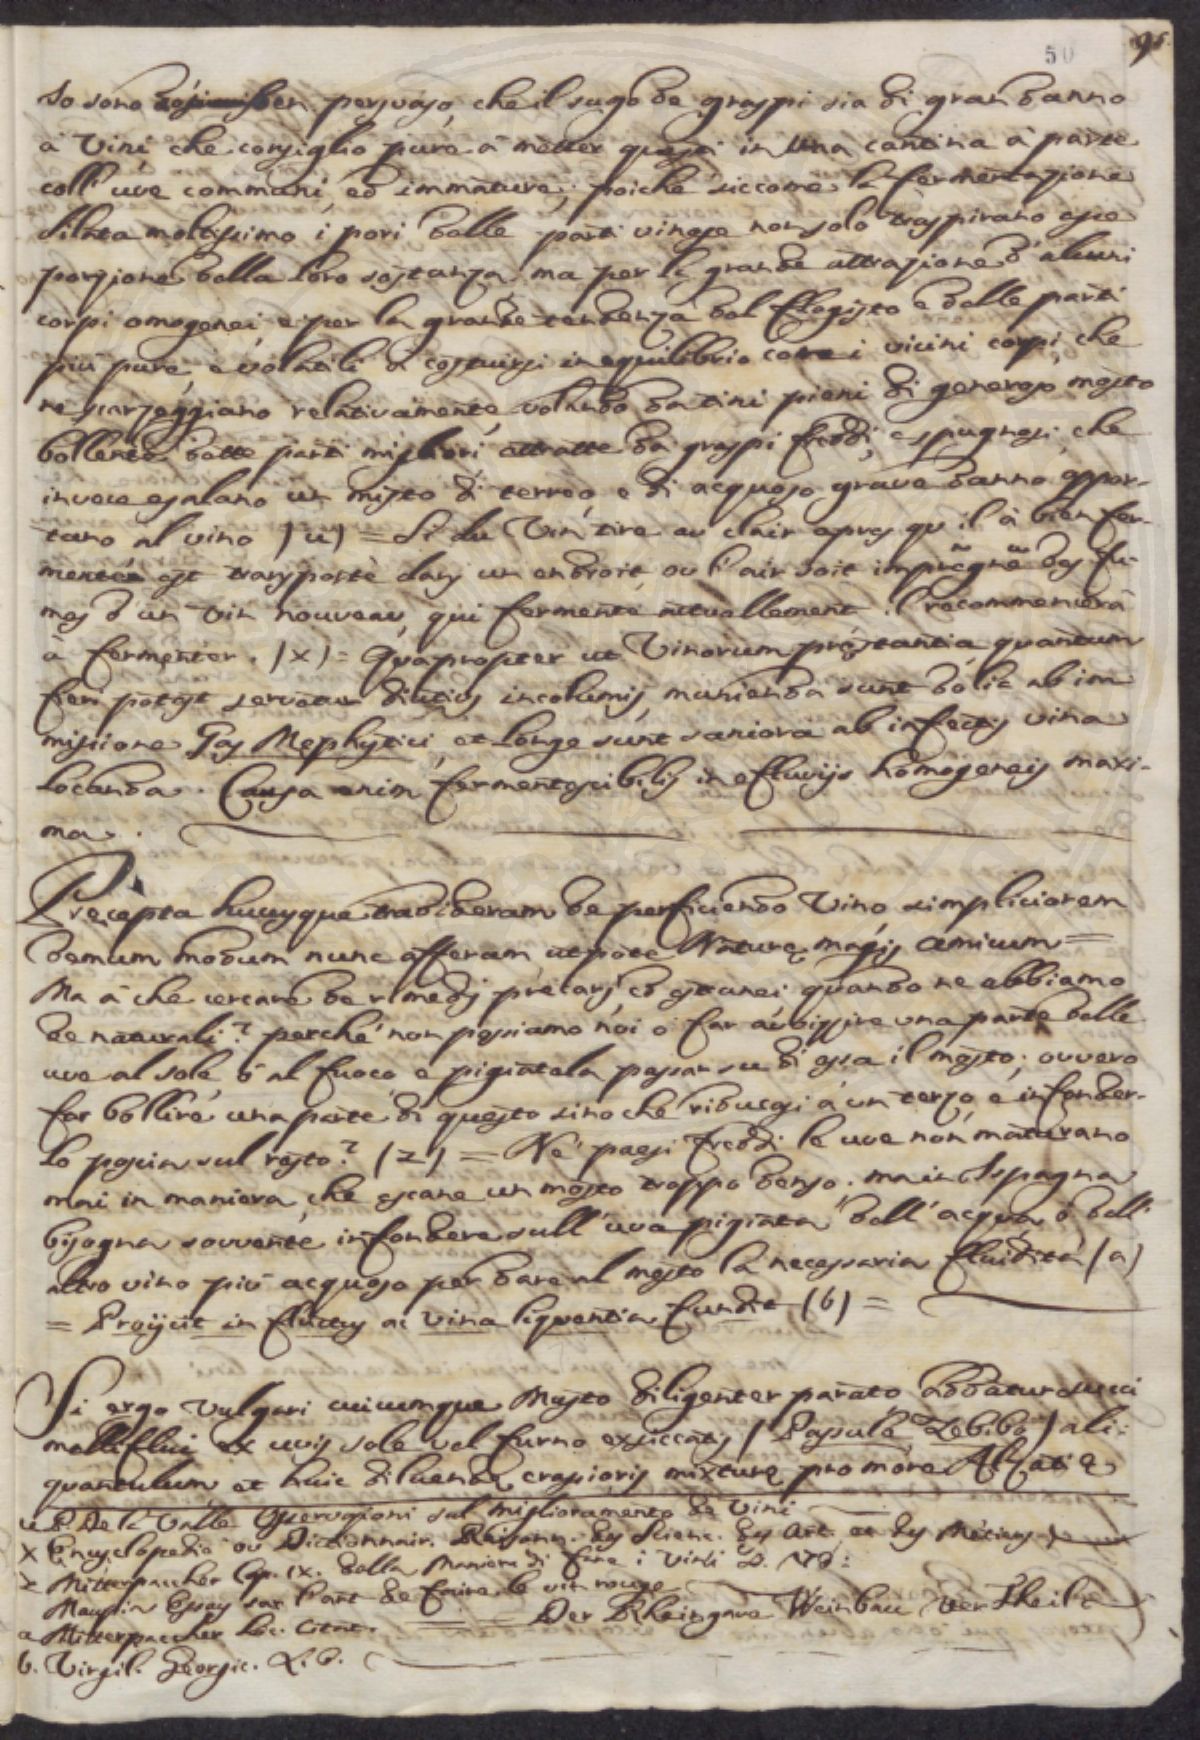 50 95.
Io sono ben persuaso, che il sugo de graspi sia di gran danno
à Vini che consiglio pure à metter questi in una cantina à parte
coll' uve communi, ed immature; poiche siccome la fermentazione
dilata moltissimo i pori delle parti vinose non solo traspirano esse
porzione della loro sostanza ma per la grande attrazione d' alcuni
corpi omogenei e per la grande tendenza del Flogisto e delle parti
più pure, e volatili a costuirsi in equilibrio con i vicini corpi, che
ne scarzeggiano relativamente, volando da tini pieni di generoso mosto
bollente dette parti migliori attratte da graspi freddi, e spugnosi, che
invece esalano un misto di terreo, e di acquoso grave danno appor-
tano al vino (u) = Si du Vin tire au clair apres qu'il à bien fer-
menté est transporté dans un endroit ou l' air soit impregné des fu-
mes d' un vin nouveau, qui fermente actuellement il recommencera
à fermenter. (x) = Quapropter ut Vinorum pręstantia quantum
fieri potest servetur diutius incolumis, munienda sunt dolia ab im
missione Gas Mephytici, et longe sunt saniora ab infectis vina
locanda. Causa enim fermentescibilis in efluvijs homogeneis maxi-
ma.
Pręcepta hucusque tradideram de perficiendo Vino simpliciorem
demum modum nunc afferam, utpote Naturę magis amicum =
Ma à che cercare de rimedj precarj, ed estranei quando ne abbiamo
de naturali? perché non possiamo noi o far appassire una parte delle
uve al sole, ò al fuoco, e pigiatela passar su di essa il mosto; ovvero
far bollire una parte di questo sino che riducasi à un terzo, e infonder-
lo poscia sul resto? (z) = Ne' paesi freddi le uve non maturano
mai in maniera, che escane un mosto troppo denso; ma in Ispagna
bisogna sovvente infondere sull' uva pigiata dell' acqua, ò dell'
altro vino più acquoso per dare al mosto la necessaria fluidità (a)
= Proijcit in fluctus ac vina liquentia fundit (b) =
Si ergo vulgari cuicumque Mosto diligenter parato addatur succi
melliflui ex uvis sole vel furno exsiccatis (Passula Zebibo) ali:
quantulum et huic diluendę crassioris mixturę pro more Alsatię
u P. De la Valle Osservazioni sul miglioramento de Vini
x Encyclopedie ou Dictionnair. Raisonn. des Scienc. des Art. et des Métiers
z Mitterpaccher Cap. IX. della Maniera di fare i Vini
Maupin Essay sur l'art de faire le vin rouge Der Rheingaue Weinbau
a Mitterpaccher loc. Citat.
b. Virgil. Georgic.